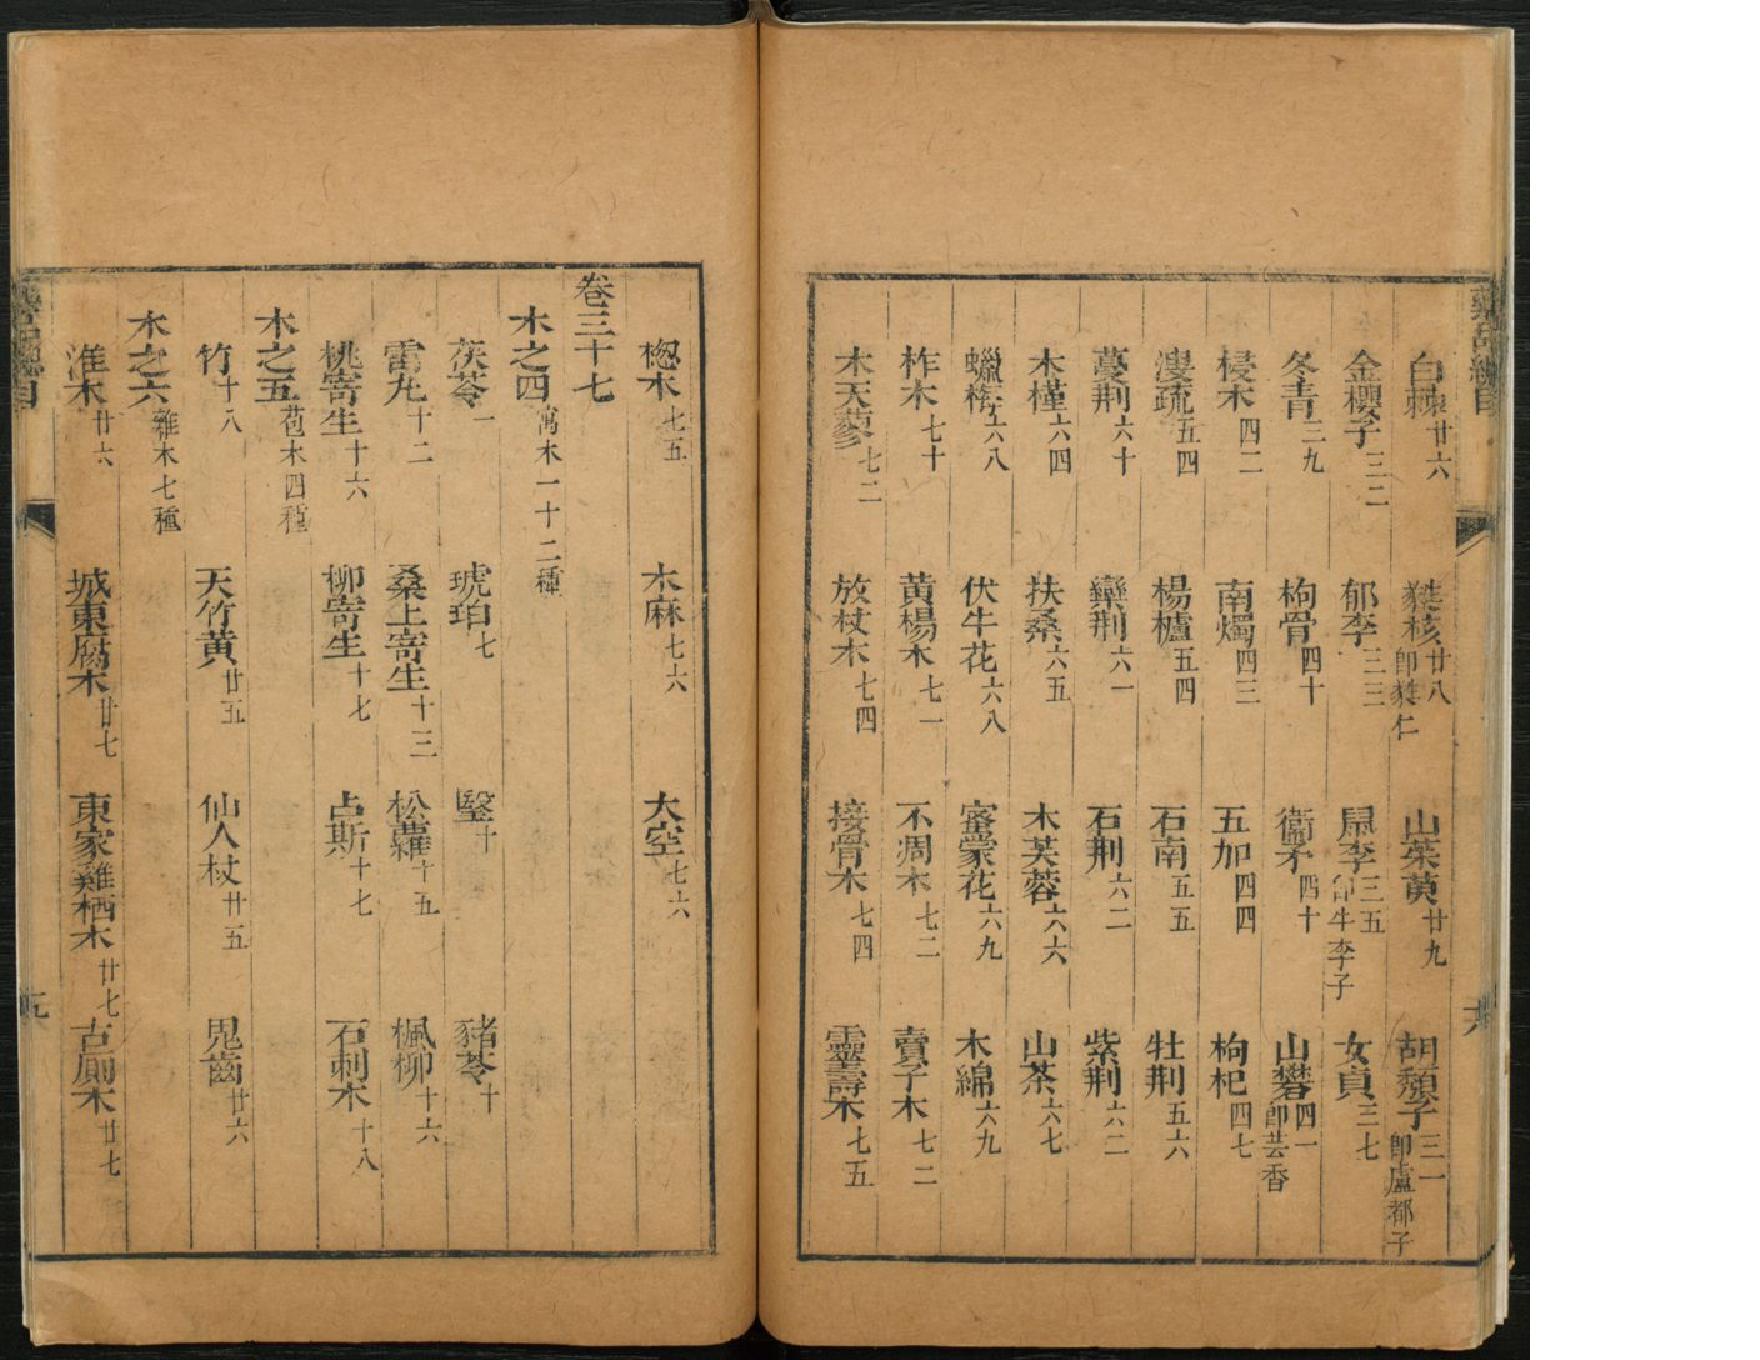 藥品總目
白棘廿六 蕤核廿八即蕤仁 山茱萸廿九 胡頹子三一即盧都子
金櫻子三二 郁李三三 鼠李三五即牛李子 女貞三七
冬青三九 枸骨四十 衞矛四十 山礬四一即芸香
桵木四二 南燭四三 五加四四 枸杞四七
溲疏五四 楊櫨五四 石南五五 牡荆五六
蔓荆六十 欒荆六一 石荆六二 紫荆六二
木槿六四 扶桑六五 木芙蓉六六 山茶六七
蠟梅六八 伏牛花六八 密蒙花六九 木綿六九
柞木七十 黃楊木七一 不凋木七二 賣子木七二
木天蓼七二 放杖木七四 接骨木七四 靈壽木七五
楤木七五 木麻七六 大空七六
卷三十七
木之四寓木一十二種
茯苓一 琥珀七 瑿十 豬苓十
雷丸十二 桑上寄生十三 松蘿十五 楓柳十六
桃寄生十六 柳寄生十七 占斯十七 石刺木十八
木之五苞木四種
竹十八 天竹黃廿五 仙人杖廿五 鬼齒廿六
木之六雜木七種
淮木廿六 城東腐木廿七 東家雞栖木廿七 古厠木廿七